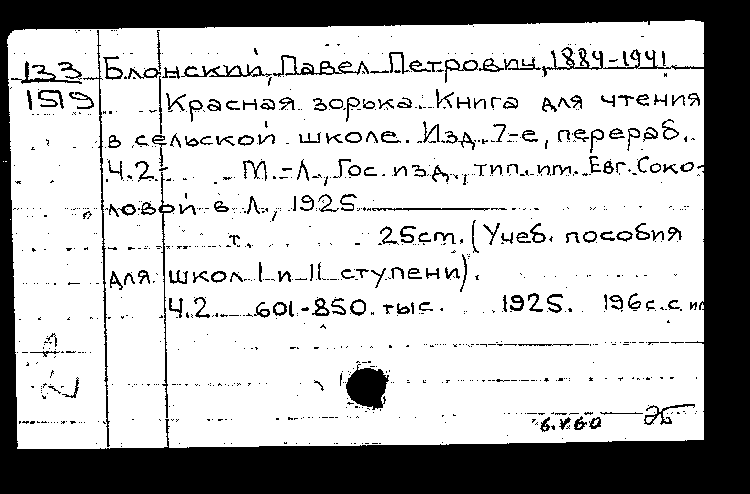 133 Блонский, Павел Петрович, 1884-1941
1519 Красная зорька. Книга для чтения
в сельской школе. Изд. 7-е, перераб.
Ч.2- М.-Л., Гос. изд., тип. им. Евг. Соко-
ловой в Л., 1925
т. 25cm. (Учеб. пособия
для школ I и II ступени).
Ч.2. 601-850. тыс. 1925. 196с. с ил
6.V.60